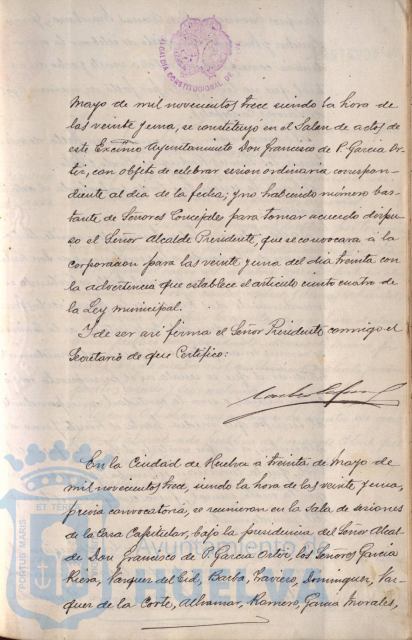 ALCALDIA CONSTITUCIONAL DE
Mayo de mil novecientos trece siendo la hora de
las veinte y una, se constituyó en el Salon de actos de
este Excmo Ayuntamiento Don Francisco de P. Garcia Or-
tiz, con objeto de celebrar sesion ordinaria correspon-
diente al dia de la fecha; y no habiendo número bas-
tante de Señores Concejales para tomar acuerdo dispu-
so el Señor Alcalde Presidente, que se convocara á la
corporacion para las veinte y una del dia treinta con
la advertencia que establece el articulo ciento cuatro de
la Ley municipal.
Y de ser asi firma el Señor Presidente conmigo el
Secretario de que Certifico:
En la Ciudad de Huelva á treinta de Mayo de
mil novecientos trece, siendo la hora de las veinte y una,
previa convocatoria, se reunieron en la Sala de sesiones
de la Casa Capitular, bajo la presidencia del Señor Alcal-
de Don Francisco de P. Garcia Ortiz, los Señores Garcia
Vazquez del Cid, Barba, Traviero, Dominguez, Vaz-
quez de la Corte, Ramero, Garcia Morales,
PORTUS MARIS
ET TERR
Ayuntamiento de
HUELVA